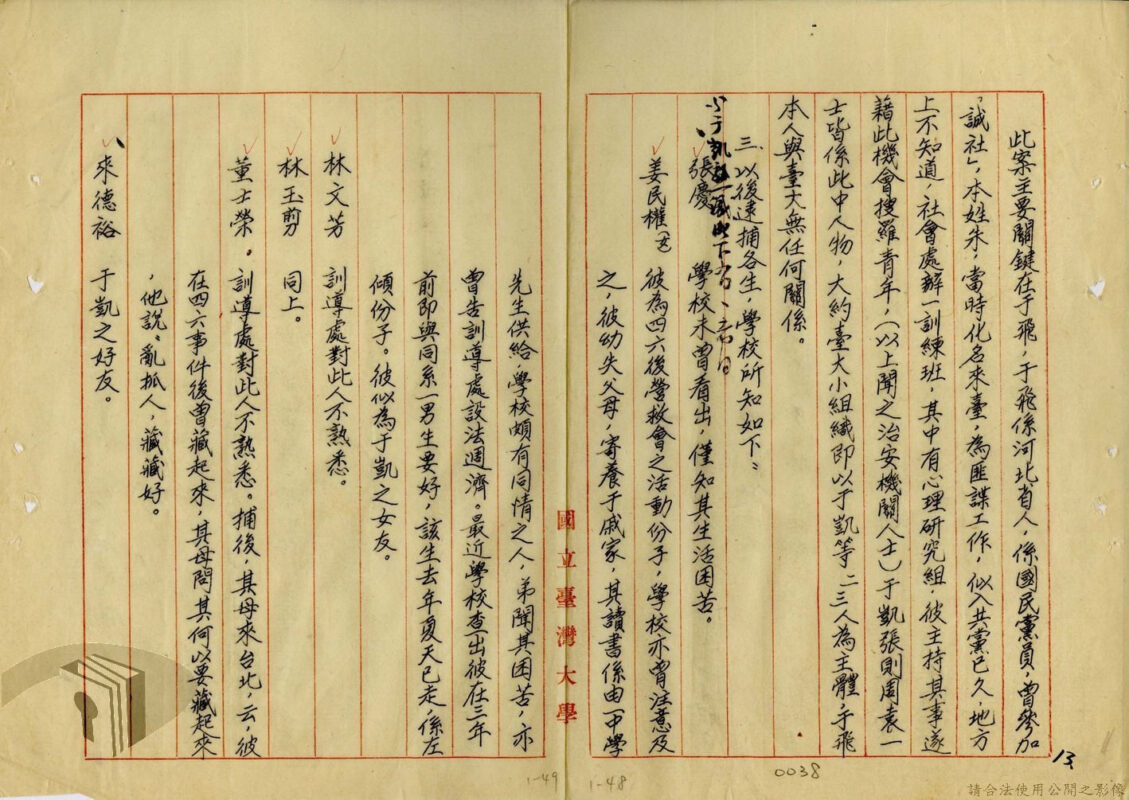 此案主要關鍵在于飛,于飛係河北省人,係國民黨員,曾參加
「誠社」,本姓朱,當時化名來臺,為匪諜工作,似入共黨已久,地方
上不知道,社會處辦一訓練班,其中有心理研究組,彼主持其事遂
藉此機會搜羅青年,(以上聞之治安機關人士)于凱張則周袁一
士皆係此中人物,大約臺大小組織即以于凱等二三人為主體,于飛
本人與臺大無任何關係。
三、以後逮捕各生,學校所知如下:
張慶 學校未曾看出,僅知其生活困苦。
姜民權 彼為四六後營救會之活動份子,學校亦曾注意及
之,彼幼失父母,寄養于戚家,其讀書係由一中學
先生供給,學校頗有同情之人,弟聞其困苦,亦
曾告訓導處設法週濟。最近學校查出彼在三年
前即與同系一男生要好,該生去年夏天已走,係左
傾份子。彼似為于凱之女友。
林文芳 訓導處對此人不熟悉。
林玉剪 同上。
董士榮。訓導處對此人不熟悉。捕後,其母來台北,云,彼
在四六事件後曾藏起來,其母問其何以要藏起來
,他說。亂抓人,藏藏好。
來德裕 于凱之好友。
國立臺灣大學
13
0038
1-48
1-49
請合法使用公開之影像